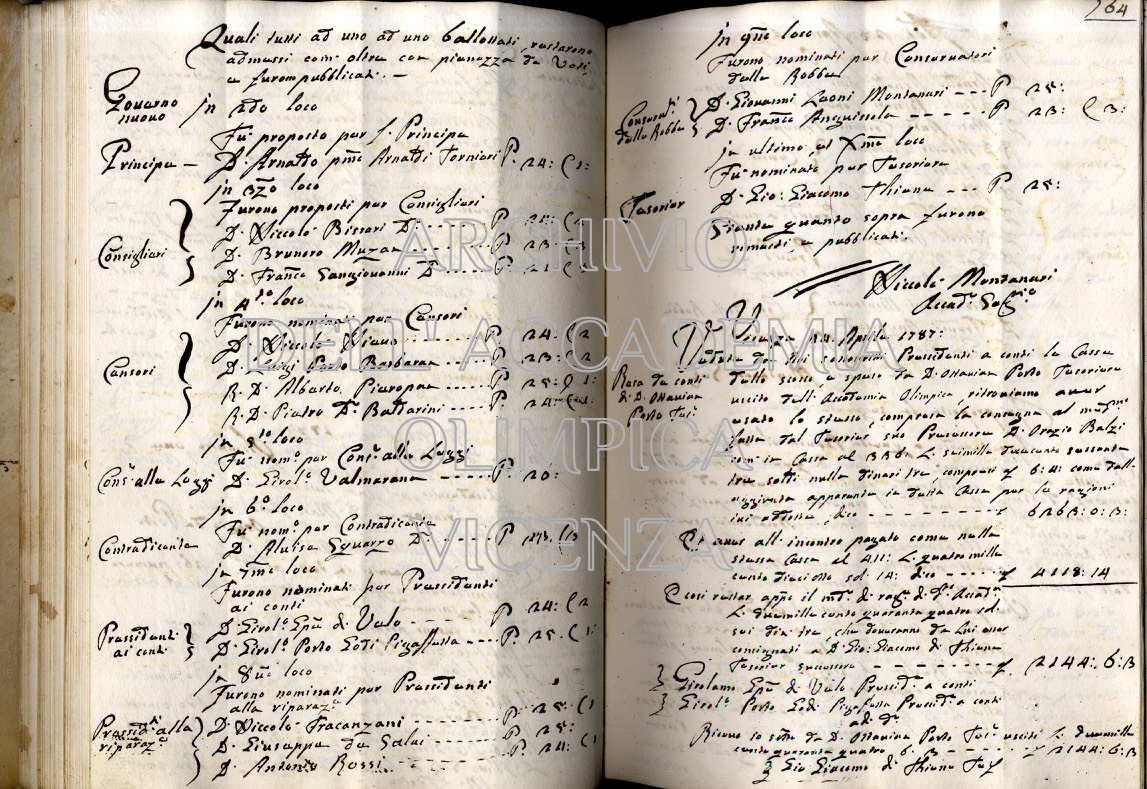 Quali tutti ad uno ad uno ballottati, restarono
admessi com' oltre con pienezza de Voti,
e furom pubblicati. —
Governo nuovo
in 2do loco
Fu proposto per Principe
Principe — D. Arnaldo pmo Arnaldi Tornieri P. 24: C 1:
in 3zo loco
Furono proposti per Consigliari
Consigliari
D. Niccolò Bissari
D. Brunoro Muzan
D. Franco Sangiovanni
in 4to loco
Furono nominati per Censori
Censori
D. Niccolò P. 24: C 2
D. Luigi Porto Barbaran P. 23: C 2
R. D. Alberto Pieropan P. 25: C 1:
R. D. Pietro Dr Baldarini P. 24:
in 5to loco
Fu nomo per Conse alle Leggi
Conse alle Leggi D. Girolo Valmarana P. 20:
in 6o loco
Fu nomo per Contradicente
Contradicente D. Aluise Squarzo P
in 7mo loco
Furono nominati per Pressidenti
ai conti
Pressidenti ai conti
D. Girolo di Velo P 24: C 2
D. Girolo Porto Godi Pigafetta P. 25. C 1:
in 8vo loco
Furono nominati per Pressidenti
alla riparaze
Pressidti alla riparaze
D. Niccolò Fracanzani P. 25: C 1
D. Giuseppe de Salvi P. 25:
D. Antonio Rossi P. 24: C 1
764
in 9no loco
Furono nominati per Conservatori
delle Robbe
Conservti delle Robbe
D. Giovanni Leoni Montanari P 25:
D. Franco Anguissola P 23: C 3:
in ultimo, et Xmo loco
Fu nominato per Tesoriere
Tesorier D. Gio: Giacomo Thiene P 25:
Stante quanto sopra furono
rimasti e pubblicati.
Niccolò Montanari
Accadco Segrio
Vicenza 14. Aprile 1787:
Veduta da Noi Presidenti a conti la Cassa
Resa de conti di D. Ottavian Porto Tesr
dello scosso, e speso da D. Ottavian Porto Tesoriere
uscito dell' Accademia Olimpica, ritroviamo aver
esso lo stesso, compresa la consegna al medmo
fatta dal Tesorier suo Precessore D. Orazio Balzi
com' in Cassa al 336 L. seimille duecento sessanta
tre soldi nulla dinari tre, compresi 6:4: come dall'
aggiunta apparente in detta Cassa per le ragioni
ivi addotte, dico 6263:0:3:
Et aver all' incontro pagato come nella
stessa Cassa al 411: L. quatromille
cento dieciotto sol 14: dico 4118:14
E così restar appo il mdo di rage di da Accada
L. duemille cento quaranta quatro sol.
sei din. tre, che doveranno da lui esser
consignati a D. Gio: Giacomo di Thiene
Tesorier successore 2144:6:3
Girolamo di Velo Pressidte a conti
Girolo Porto Godi Pigafetta Pressidte a conti
Ricevo io sotto da D. Ottavian Porto Tesr uscito L. duemille
cento quaranta quatro 6:3 2144:6:3
Gio Giacomo di Thiene Tesr
ARCHIVIO
DELL' ACCADEMIA
OLIMPICA
VICENZA